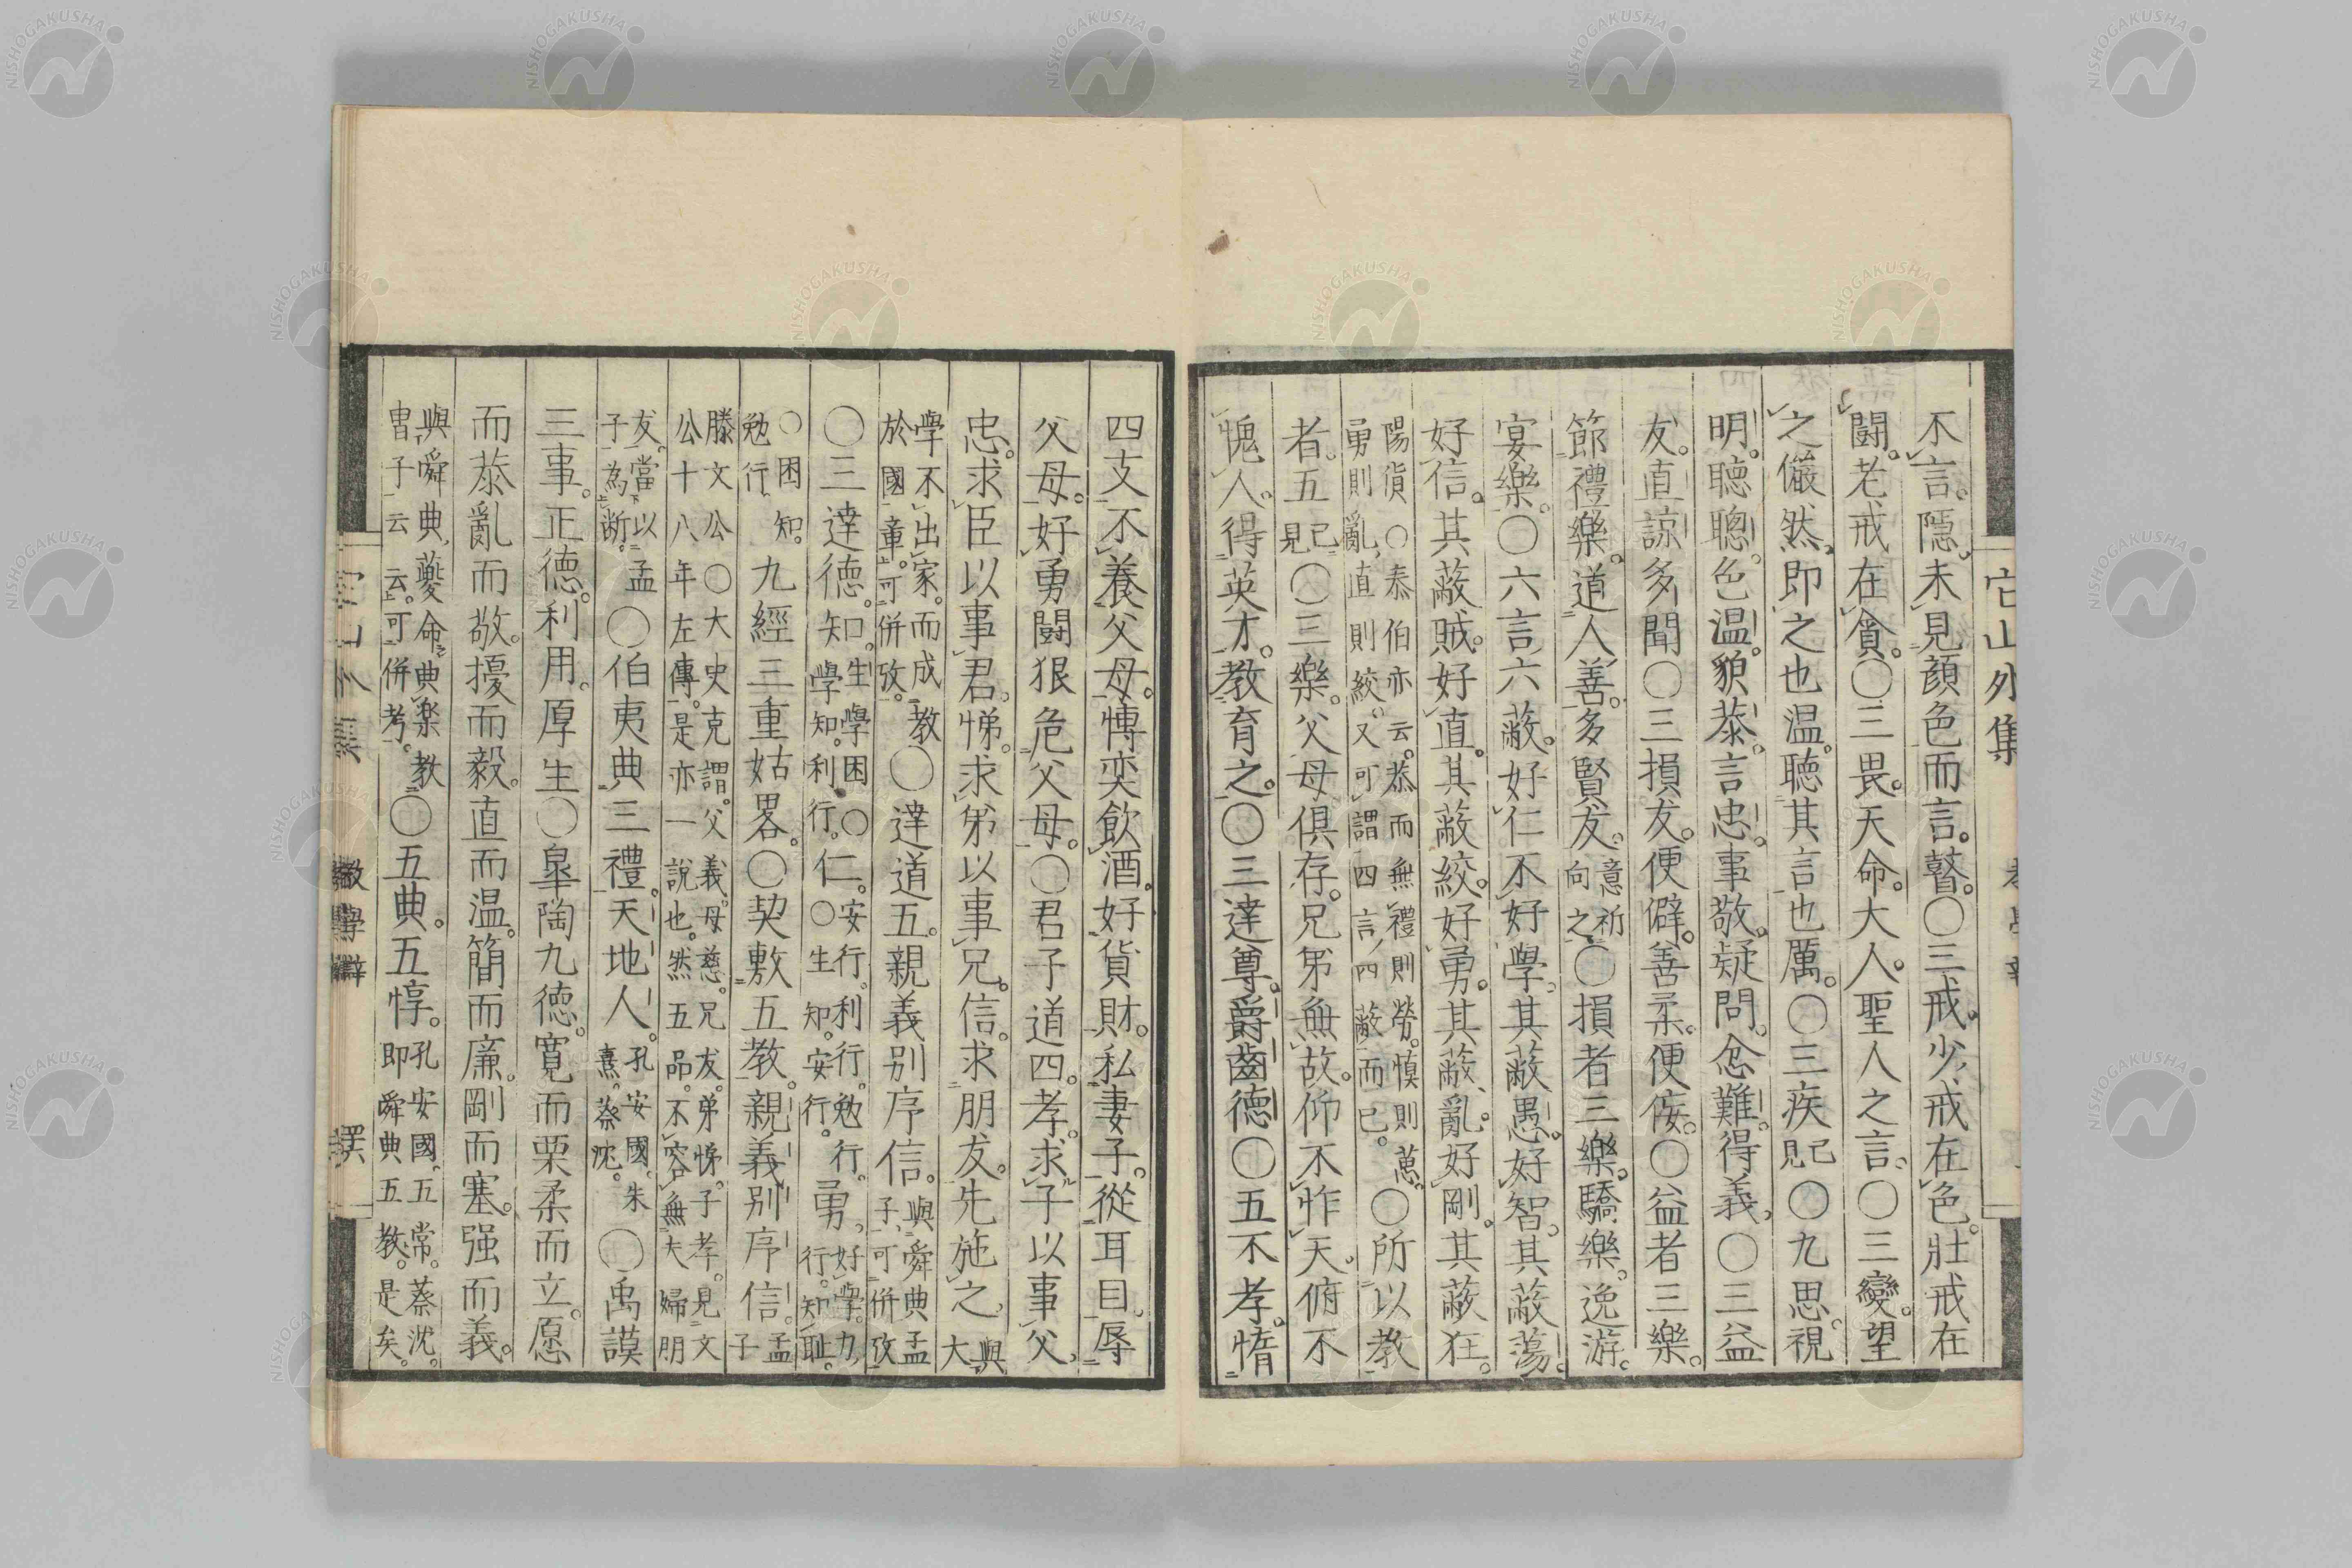 不言。隱。未見顔色而言。瞽。〇三戒。少戒在色。壯戒在
闘。老戒在貪。〇三畏。天命。大人。聖人之言。〇三變。望
之儼然。即之也温。聴其言也厲。〇三疾已見〇九思。視
明。聴聰。色温。貌恭。言忠。事敬。疑問。忿難。得義。〇三益
友。直諒多聞〇三損友。便僻。善柔。便佞。〇益者三樂。
節禮樂。道人善。多賢友。意祈向之〇損者三樂。驕樂。逸游。
宴樂。〇六言六蔽。好仁不好學。其蔽愚。好智。其蔽蕩。
好信。其蔽賊。好直。其蔽絞。好勇。其蔽亂。好剛。其蔽狂。
陽貨〇泰伯亦云。恭而無禮則勞。慎則葸。勇則亂。直則絞。又可謂四言四蔽而已。〇所以教
者。五已見〇三樂。父母倶存。兄弟無故。仰不怍天。俯不
愧人。得英才。教育之。〇三達尊。爵齒德〇五不孝。惰
四支不養父母。博奕飲酒。好貨財。私妻子。從耳目。辱
父母。好勇闘狠危父母。〇君子道四。孝。求子以事父。
忠。求臣以事君。悌。求弟以事兄。信。求朋友。先施之。與大
學不出家。而成教於國一章。可併攷。〇達道五。親義别序信。與舜典孟子可併攷
〇三達德。知。生學困〇學知。利行。仁。安行。利行。勉行。〇生知。安行。勇。好學。力行。知耻。
〇困知。勉行九經三重姑畧。〇契敷五教。親義别序信。孟子
滕文公〇大史克謂。父義。母慈。兄友。弟悌。子孝。見文公十八年左傳。是亦一說也。然五品。不容無夫婦朋
友。當以孟子為断。〇伯夷典三禮。天地人。孔安國。朱熹。蔡沈。〇禹謨
三事。正德。利用。厚生〇皐陶九德。寛而栗柔而立。愿
而恭亂而敬。擾而毅。直而温。簡而廉。剛而塞。强而義。
與舜典。夔命典樂教冑子云云。可併考。〇五典。五惇。孔安國。五常。蔡沈。即舜典五教。是矣。
敎學辯
撰
它山外集